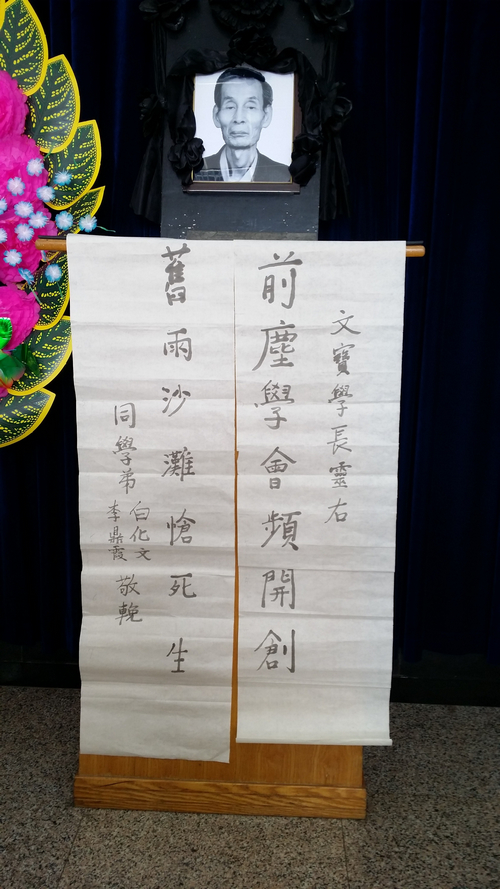 文寶學長靈右
前塵學會頻開創
舊雨沙灘愴死生
同學弟 白化文 李鼎霞 敬輓